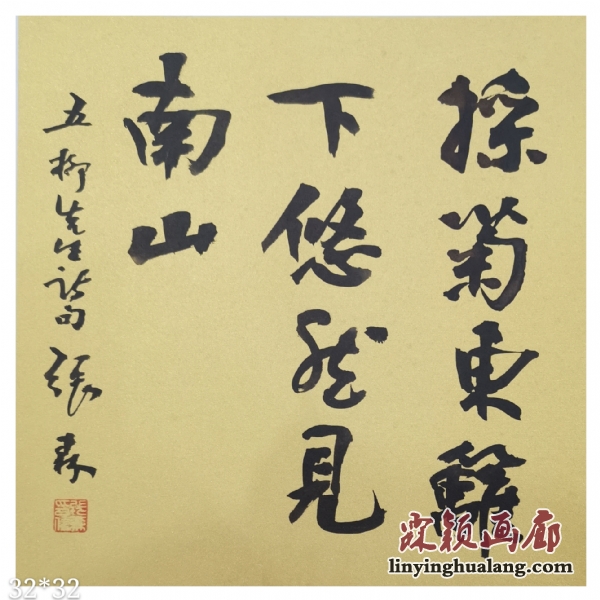 採菊東籬
下悠然見
南山
五柳先生詩句 張森
霖颖画廊
linyinghualang.com
32*32